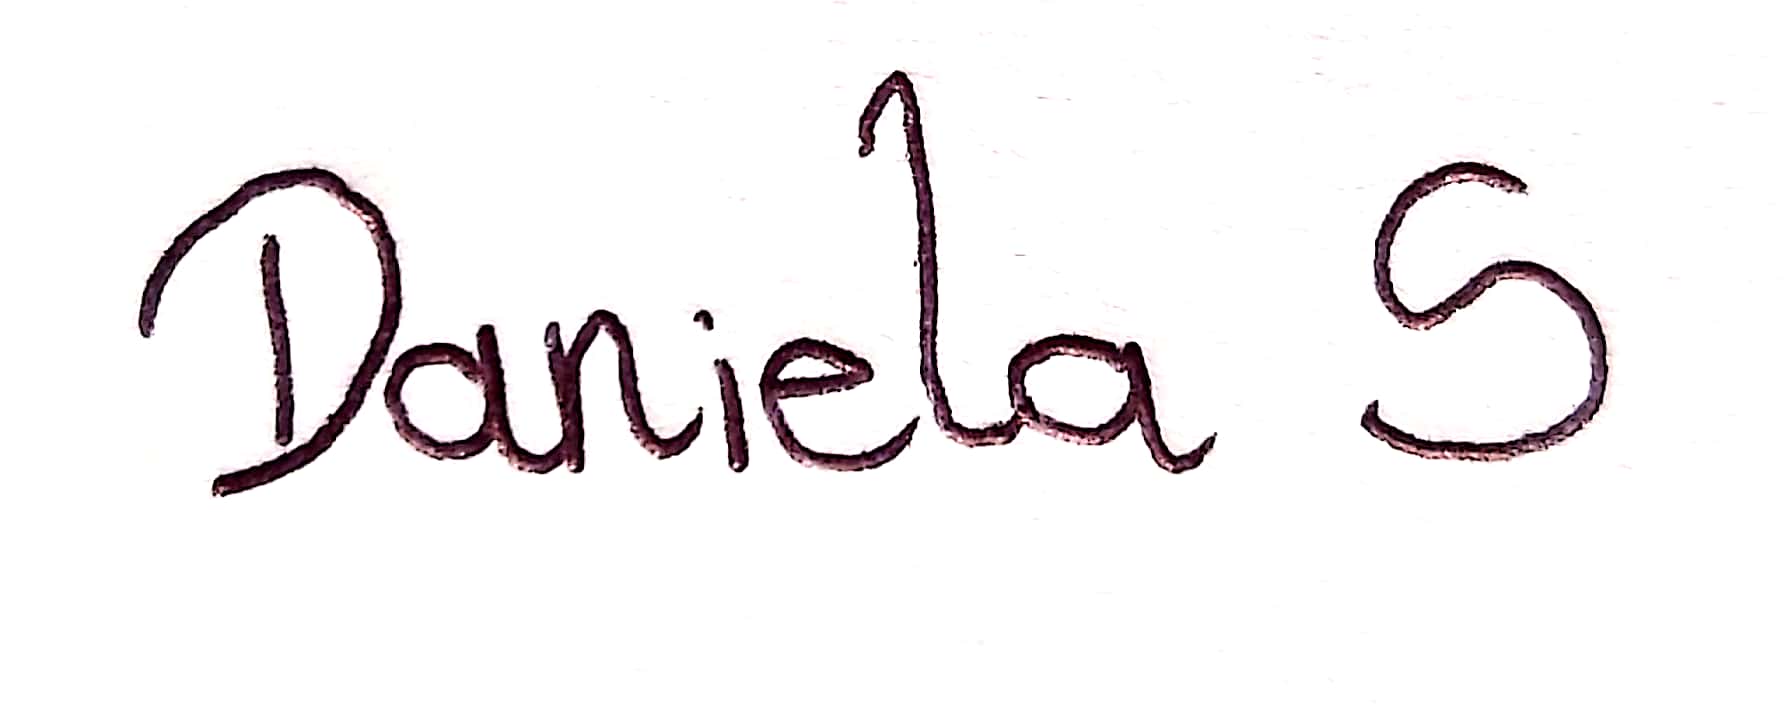 Daniela S